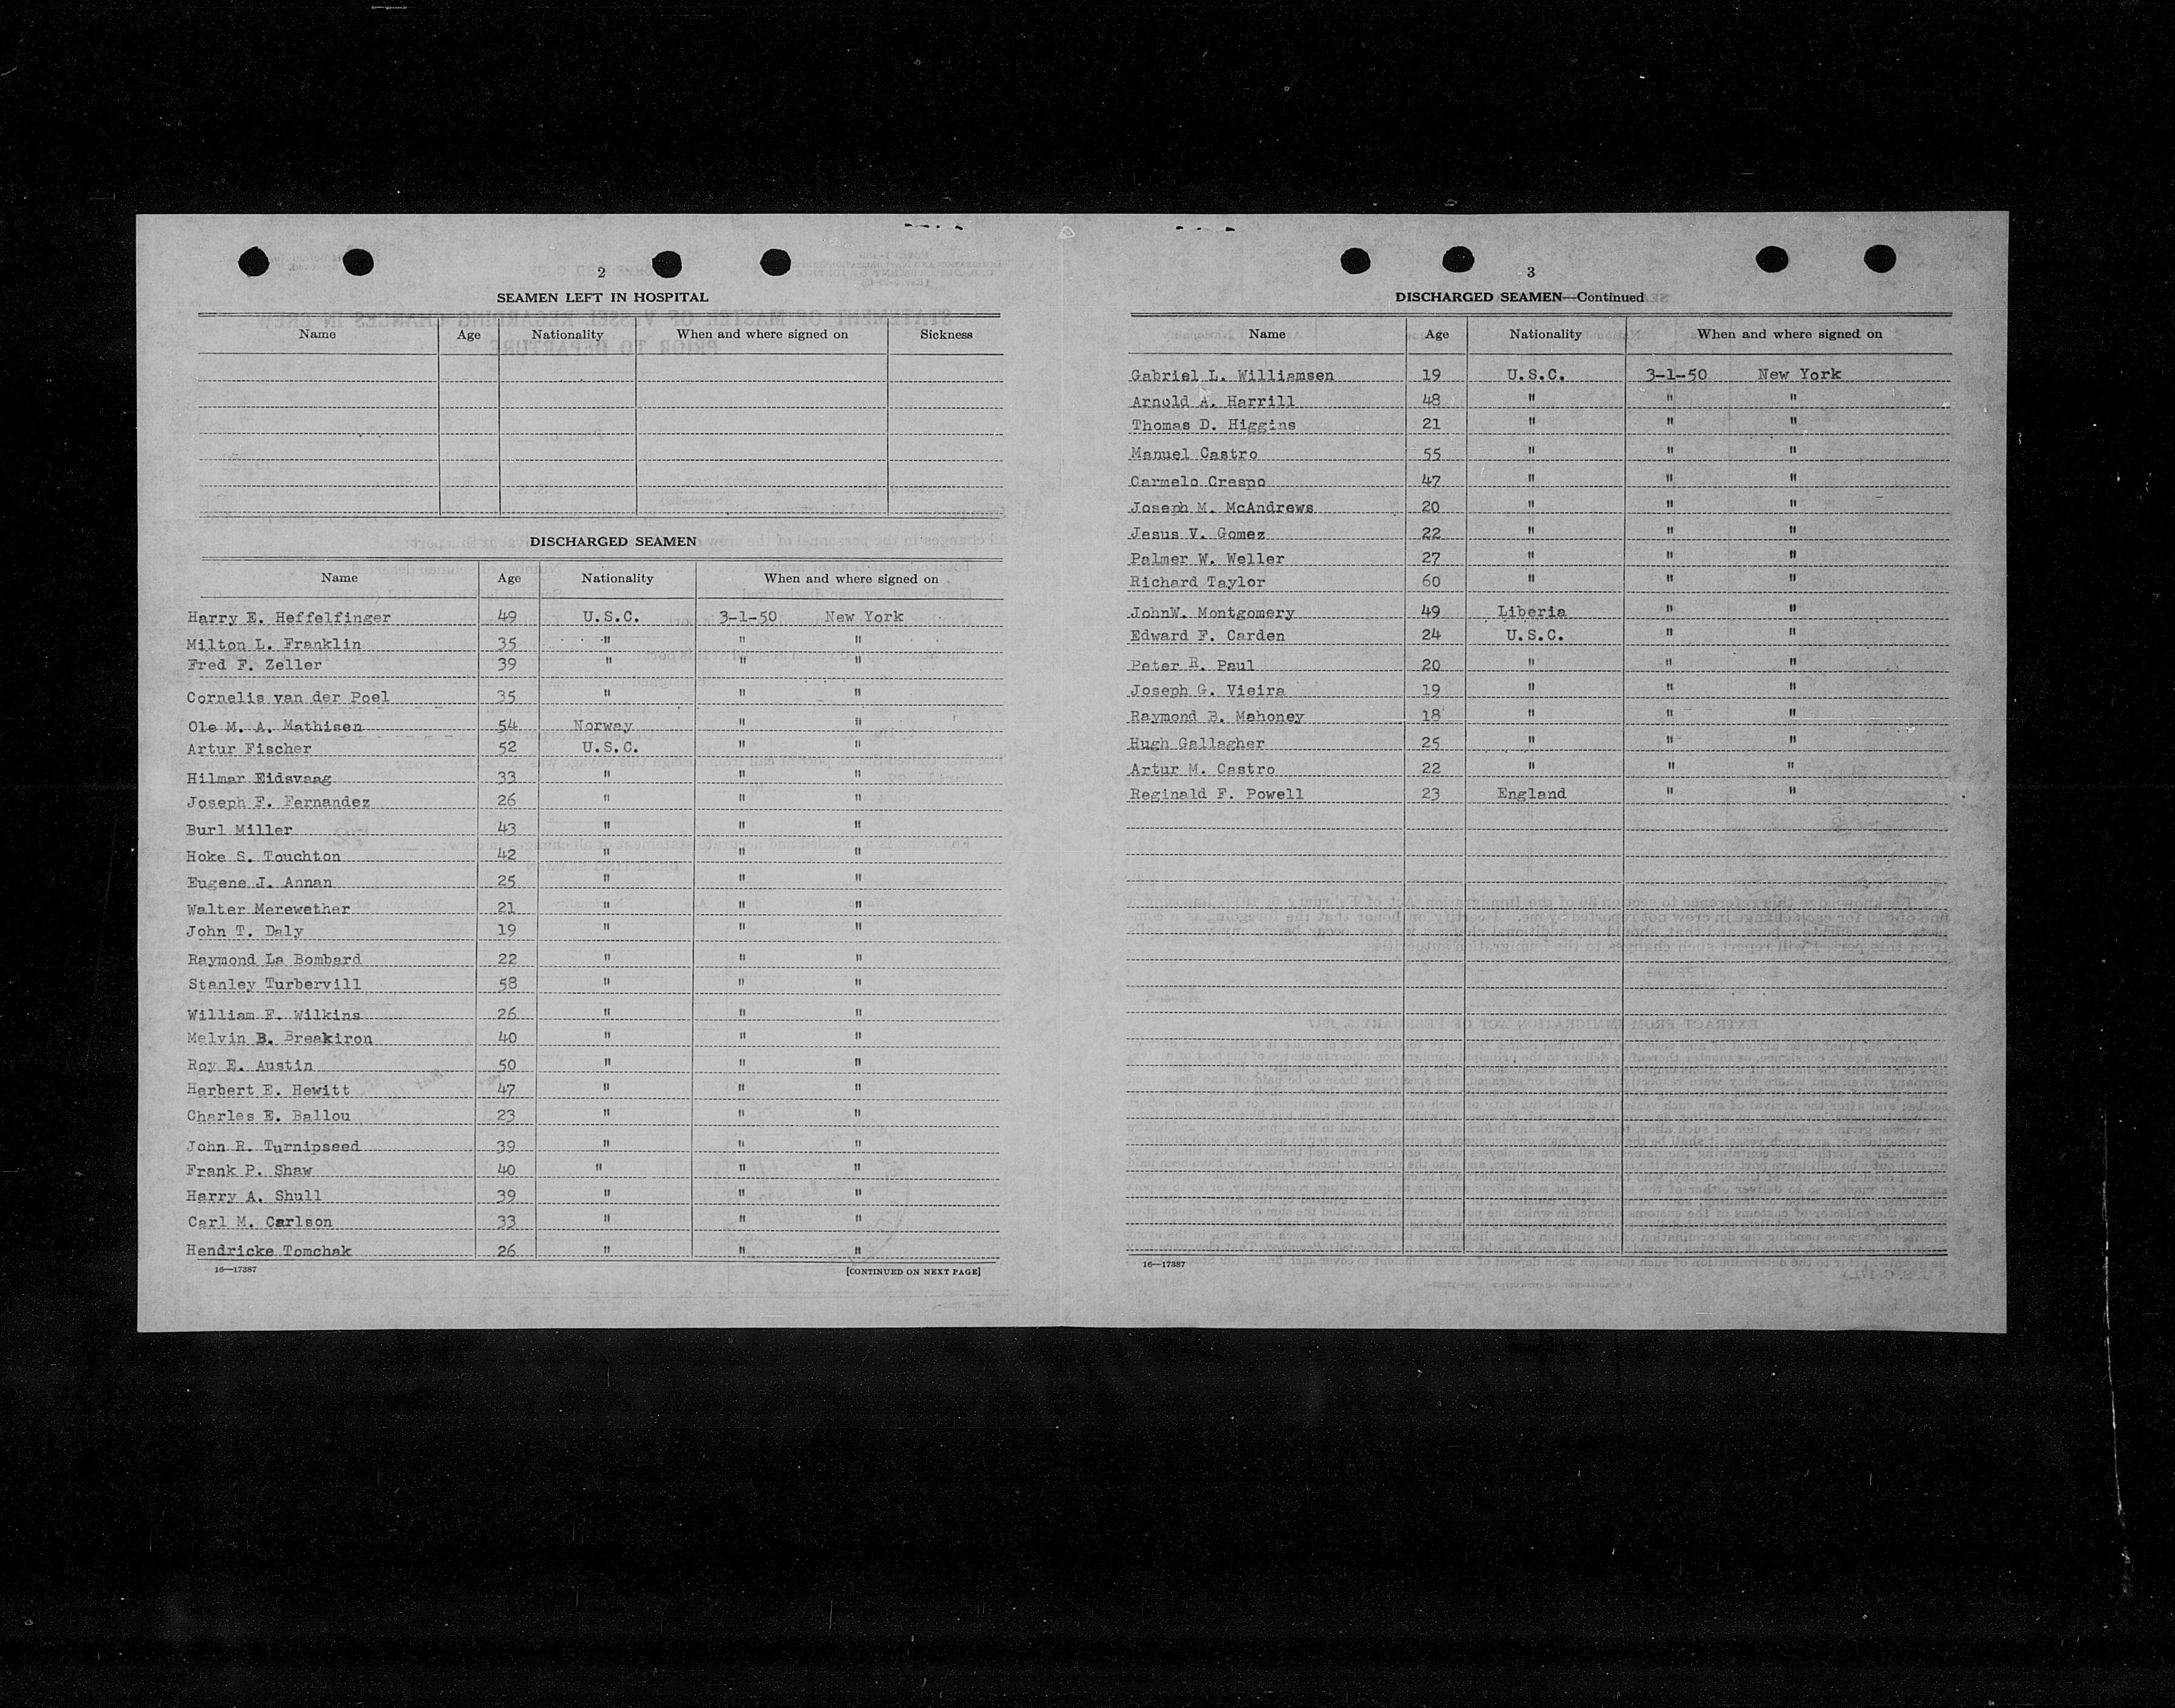 2
SEAMEN LEFT IN HOSPITAL
Name Age Nationality When and where signed on Sickness
DISCHARGED SEAMEN
Name Age Nationality When and where signed on
Harry E. Heffelfinger 49 U.S.C. 3-1-50 New York
Milton L. Franklin 35 " " "
Fred F. Zeller 39 " " "
Cornelis van der Poel 35 " " "
Ole M. A. Mathisen 54 Norway " "
Artur Fischer 52 U.S.C. " "
Hilmar Eidsvaag 33 " " "
Joseph F. Fernandez 26 " " "
Burl Miller 43 " " "
Hoke S. Touchton 42 " " "
Eugene J. Annan 25 " " "
Walter Merewether 21 " " "
John T. Daly 19 " " "
Raymond La Bombard 22 " " "
Stanley Turbervill 58 " " "
William F. Wilkins 26 " " "
Melvin B. Breakiron 40 " " "
Roy E. Austin 50 " " "
Herbert E. Hewitt 47 " " "
Charles E. Ballou 23 " " "
John R. Turnipseed 39 " " "
Frank P. Shaw 40 " " "
Harry A. Shull 39 " " "
Carl M. Carlson 33 " " "
Hendricke Tomchak 26 " " "
16—17387 [CONTINUED ON NEXT PAGE]
3
DISCHARGED SEAMEN—Continued
Name Age Nationality When and where signed on
Gabriel L. Williamsen 19 U.S.C. 3-1-50 New York
Arnold A. Harrill 48 " " "
Thomas D. Higgins 21 " " "
Manuel Castro 55 " " "
Carmelo Crespo 47 " " "
Joseph M. McAndrews 20 " " "
Jesus V. Gomez 22 " " "
Palmer W. Weller 27 " " "
Richard Taylor 60 " " "
JohnW. Montgomery 49 Liberia " "
Edward F. Carden 24 U.S.C. " "
Peter R. Paul 20 " " "
Joseph G. Vieira 19 " " "
Raymond B. Mahoney 18 " " "
Hugh Gallagher 25 " " "
Artur M. Castro 22 " " "
Reginald F. Powell 23 England " "
16—17387